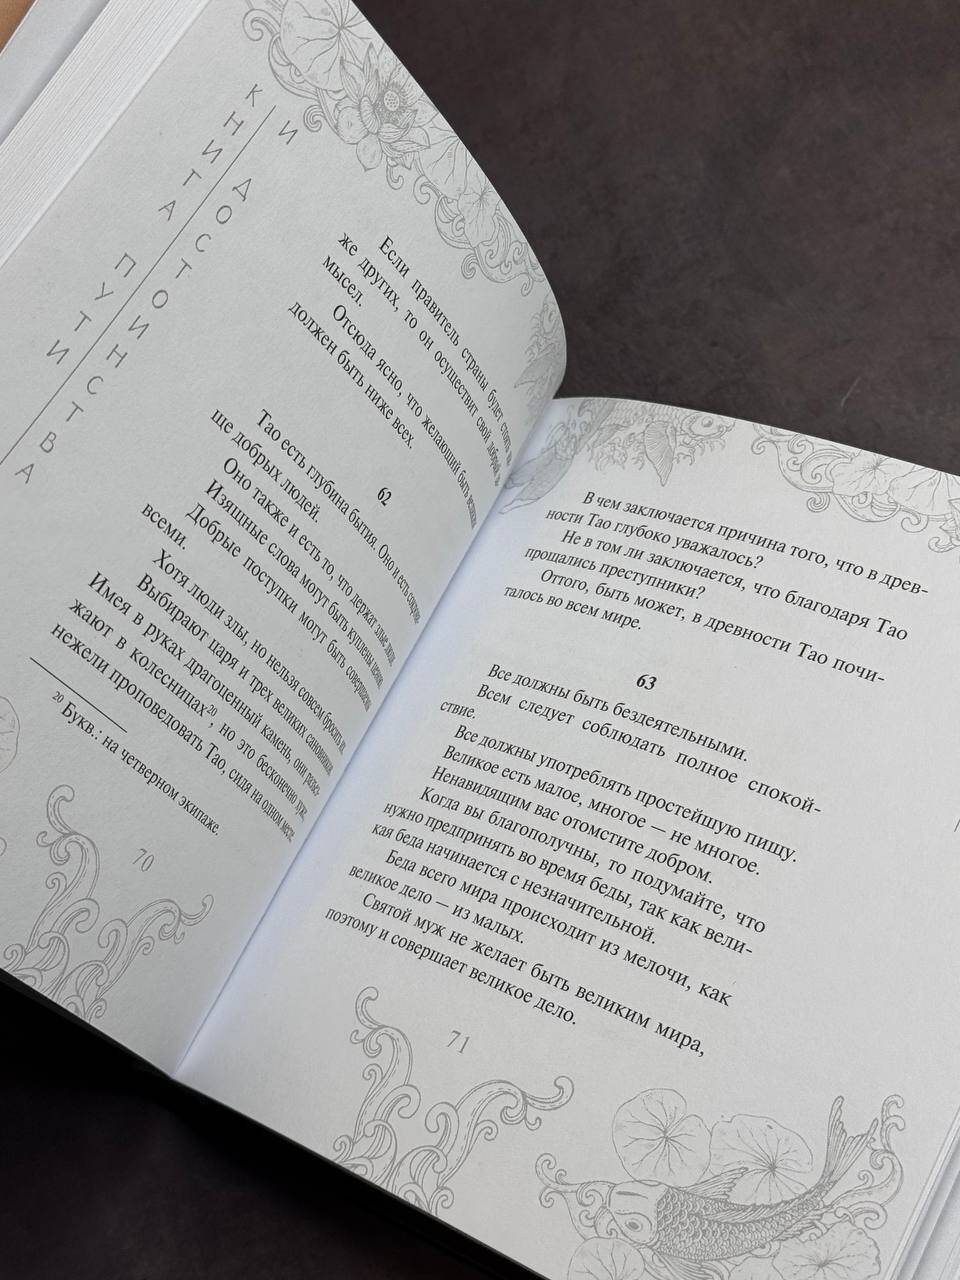 КНИГА ПУТИ
И ДОСТОИНСТВА
Если правитель страны будет ни-
же других, то он осуществит свой добрый за-
мысел.
Отсюда ясно, что желающий быть
должен быть ниже всех.
62
Тао есть глубина бытия. Оно и есть сокрови-
ще добрых людей.
Оно также и есть то, что держат злые люди.
Изящные слова могут быть куплены ценою.
Добрые поступки могут быть совершаемы
всеми.
Хотя люди злы, но нельзя совсем бросить их.
Выбирают царя и трех великих сановников.
Имея в руках драгоценный камень, они разъез-
жают в колесницах²⁰, но это бесконечно хуже,
нежели проповедовать Тао, сидя на одном месте.
²⁰ Букв.: на четверном экипаже.
70
В чем заключается причина того, что в древ-
ности Тао глубоко уважалось?
Не в том ли заключается, что благодаря Тао
прощались преступники?
Оттого, быть может, в древности Тао почи-
талось во всем мире.
63
Все должны быть бездеятельными.
Всем следует соблюдать полное спокой-
ствие.
Все должны употреблять простейшую пищу.
Великое есть малое, многое — не многое.
Ненавидящим вас отомстите добром.
Когда вы благополучны, то подумайте, что
нужно предпринять во время беды, так как вели-
кая беда начинается с незначительной.
Беда всего мира происходит из мелочи, как
великое дело — из малых.
Святой муж не желает быть великим мира,
поэтому и совершает великое дело.
71